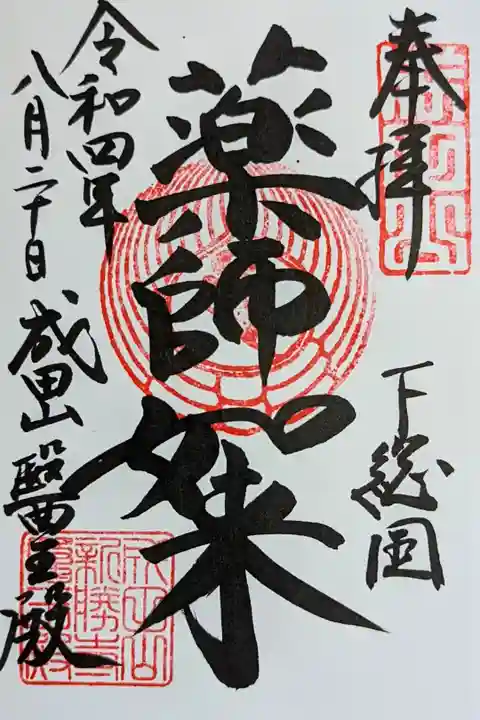 奉拝
下総国
薬師如来
令和四年
八月二十日
成田山
醫王殿
成田山
新勝寺